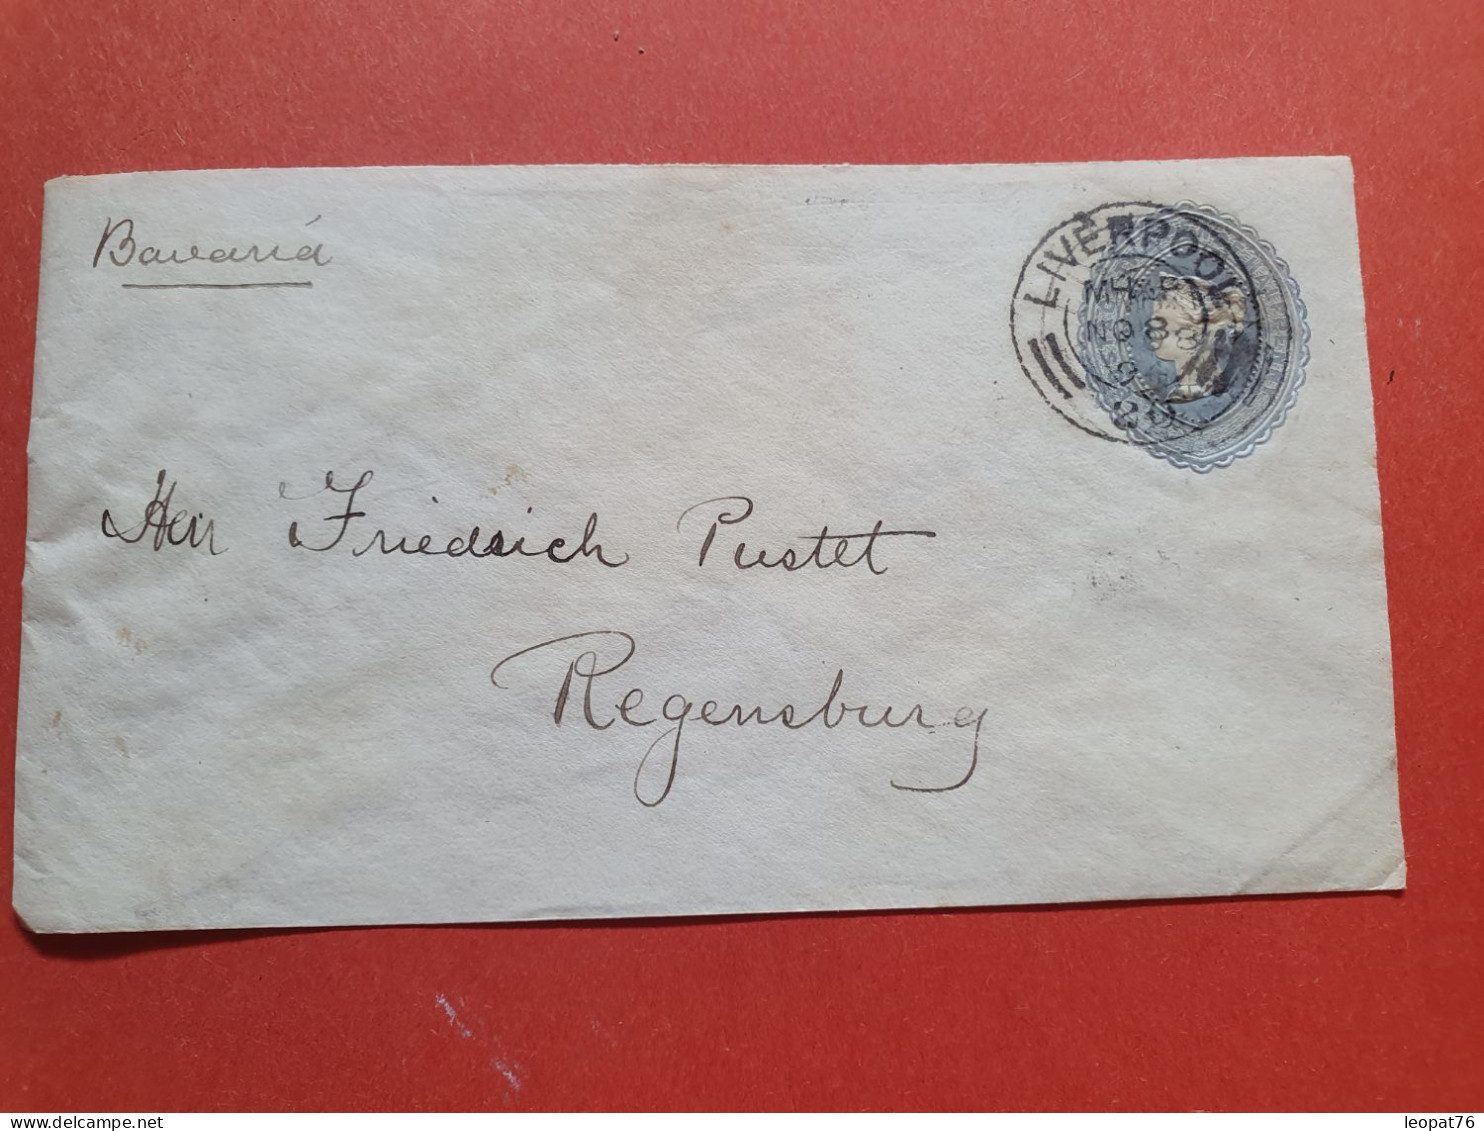 Bavaria
LIVERPOOL
NO 8
Herr Friedrich Pustet
Regensburg
leopat76
www.delcampe.net